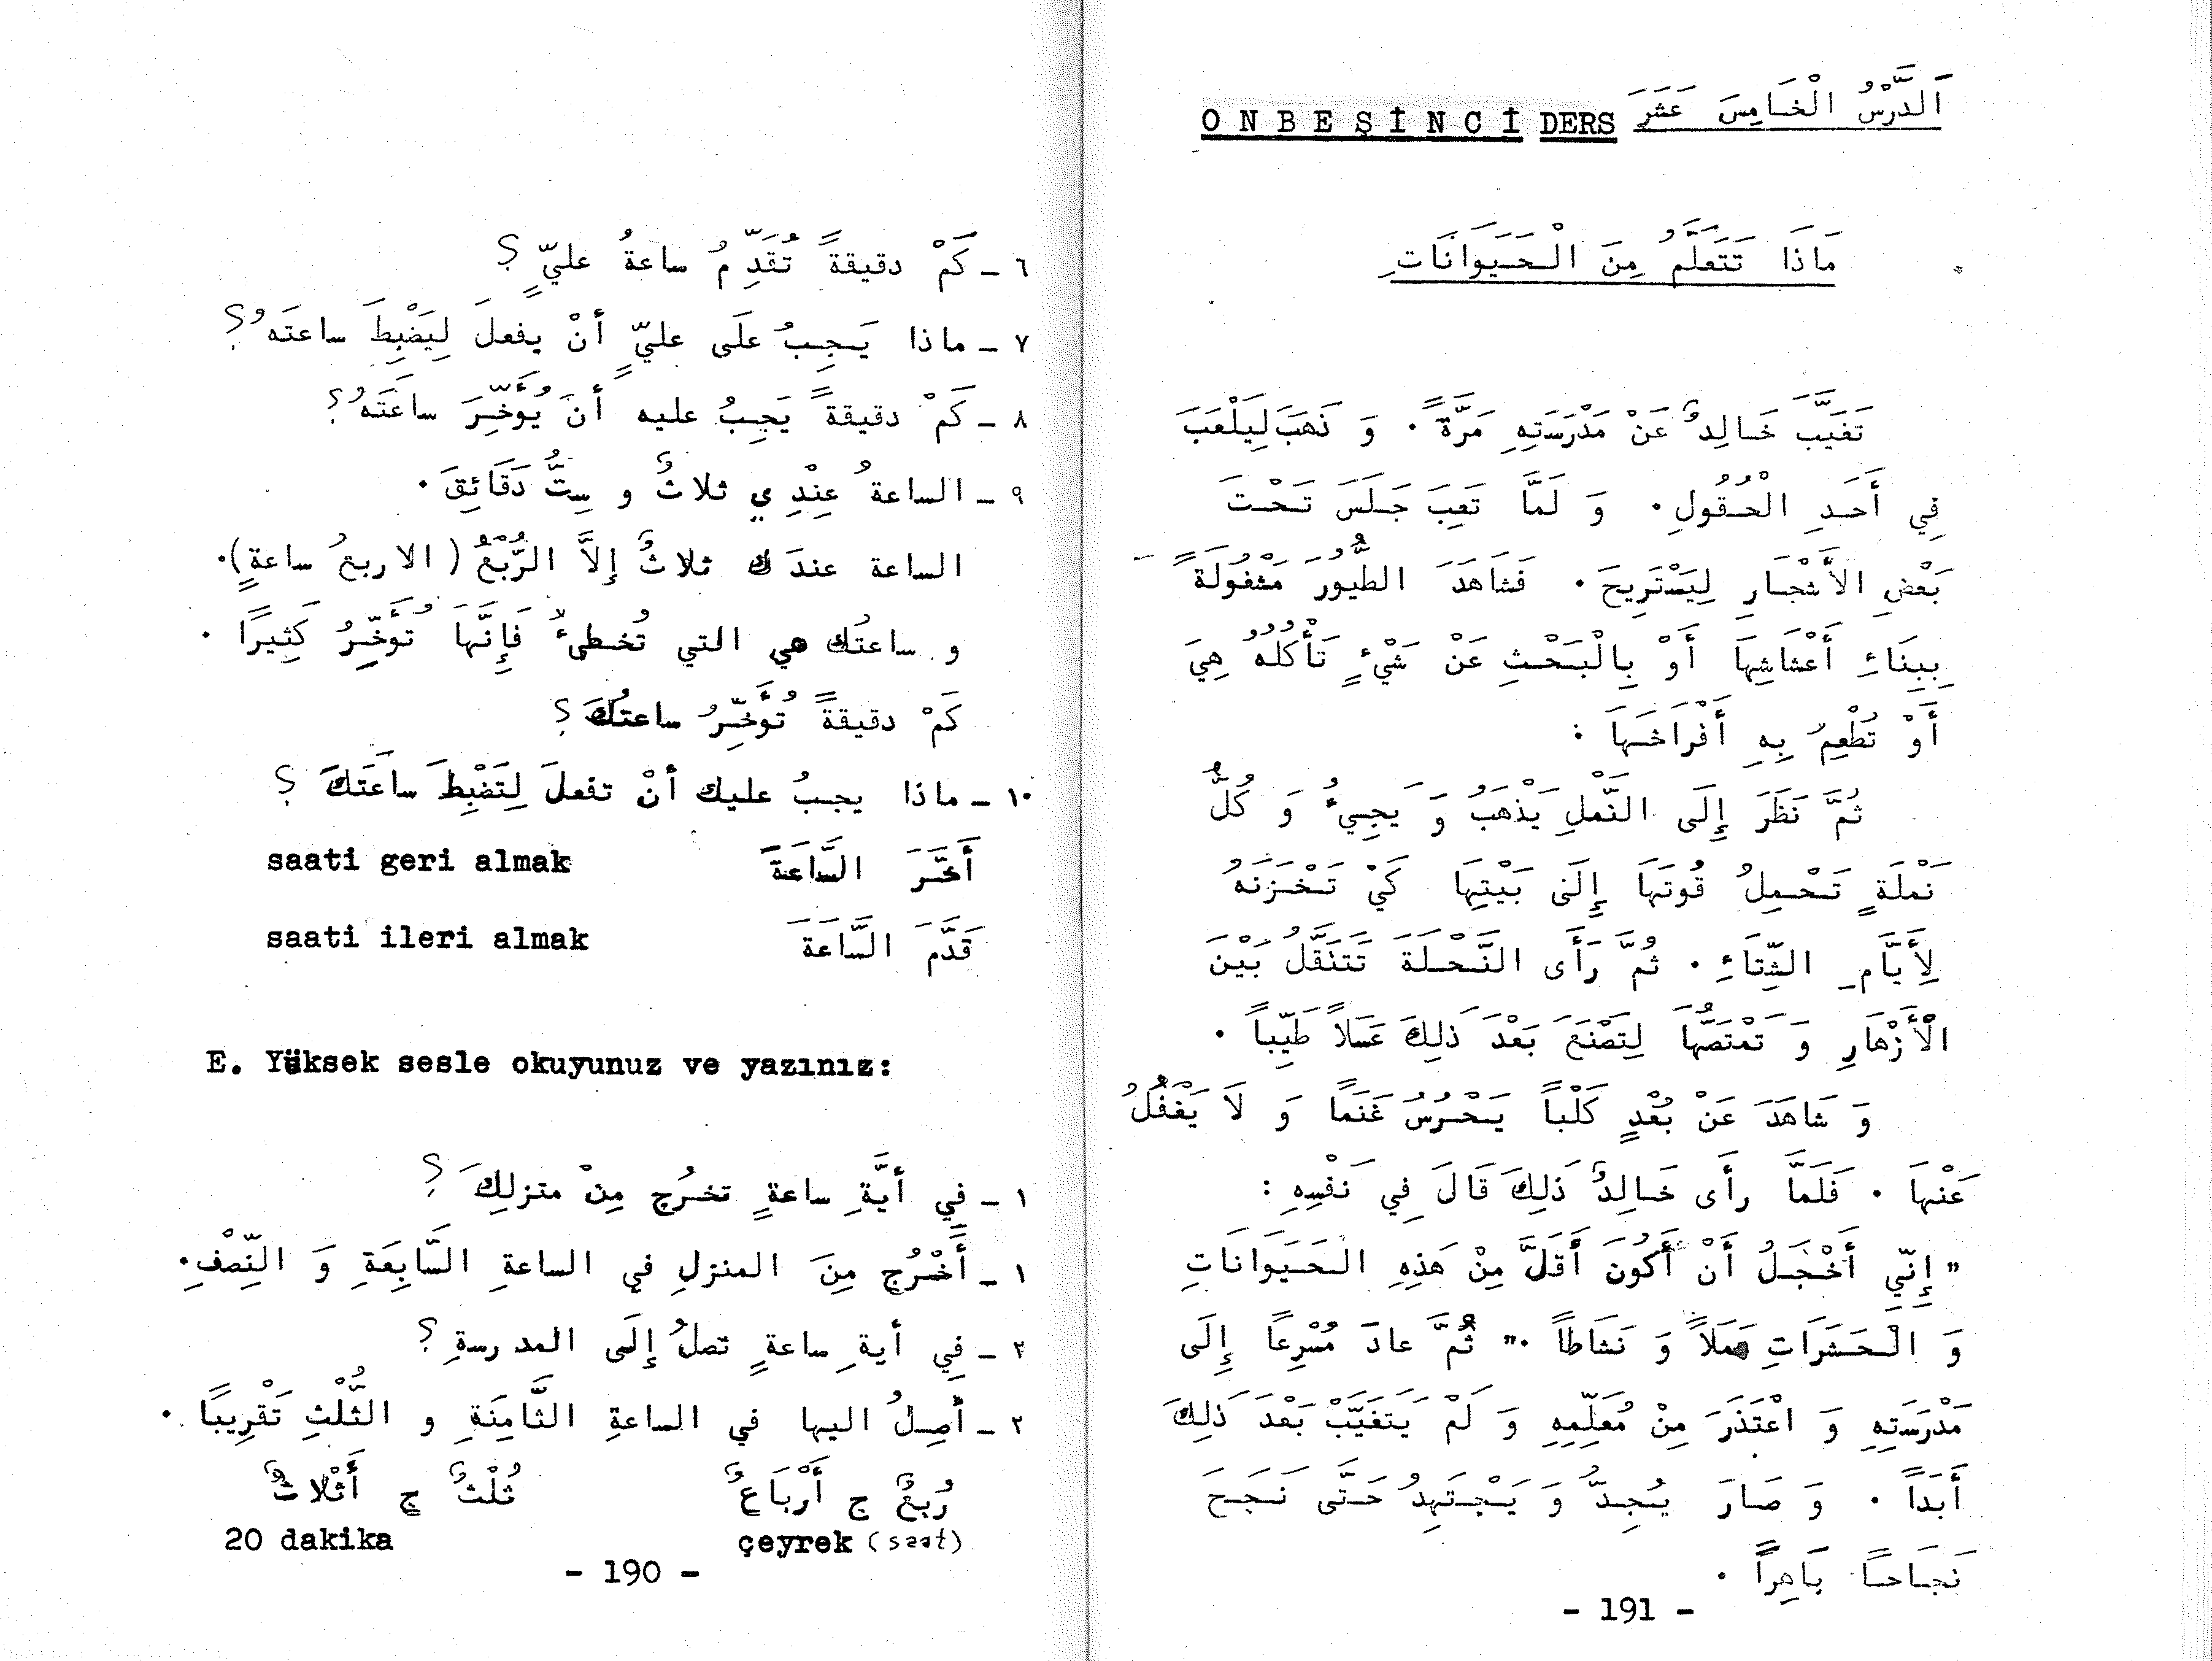 ٦ ـ كَمْ دقيقةً تُقَدِّمُ ساعةُ عليٍّ ؟
٧ ـ ماذا يَجِبُ علَى عليٍّ أنْ يفعلَ لِيَضْبِطَ ساعتَهُ ؟
٨ ـ كَمْ دقيقةً يَجِبُ عليه أنَ يُؤَخِّرَ ساعَتَهُ ؟
٩ ـ الساعةُ عِنْدِي ثلاثٌ و سِتُّ دَقَائِقَ .
الساعة عندَك ثلاثٌ إلاَّ الرُّبْعُ ( الا ربعُ ساعةٍ ).
و ساعتُك هي التي تُخطىءُ فَإِنَّهَا تُؤَخِّرُ كَثِيرًا .
كَمْ دقيقةً تُؤَخِّرُ ساعتُكَ ؟
١٠ ـ ماذا يجبُ عليك أنْ تفعلَ لِتَضْبِطَ ساعَتَكَ ؟
أَخَّرَ السَّاعَةَ saati geri almak
قَدَّمَ السَّاعَةَ saati ileri almak
E. Yüksek sesle okuyunuz ve yazınız:
١ ـ فِي أَيَّةِ ساعةٍ تخرُج مِنْ منزلِكَ ؟
١ ـ أَخْرُج مِنَ المنزلِ في الساعةِ السَّابِعَةِ وَ النِّصْفِ.
٢ ـ فِي أيةِ ساعةٍ تصلُ إِلَى المدرسةِ ؟
٢ ـ أَصِلُ اليها في الساعةِ الثَّامِنَةِ و الثُّلْثِ تَقْرِيبًا .
رُبعٌ ج أَرْبَاعٌ ثُلْثٌ ج أَثْلاثٌ
çeyrek (saat) 20 dakika
- 190 -
اَلدَّرْسُ الْخَامِسَ عَشَرَ ONBEŞİNCİ DERS
مَاذَا تَتَعَلَّمُ مِنَ الْحَيَوَانَاتِ
تَغَيَّبَ خَالِدٌ عَنْ مَدْرَسَتِهِ مَرَّةً . وَ ذَهَبَ لِيَلْعَبَ
فِي أَحَدِ الْحُقُولِ . وَ لَمَّا تَعِبَ جَلَسَ تَحْتَ
بَعْضِ الأَشْجَارِ لِيَسْتَرِيحَ . فَشَاهَدَ الطُّيُورَ مَشْغُولَةً
بِبِنَاءِ أَعْشَاشِهَا أَوْ بِالْبَحْثِ عَنْ شَيْءٍ تَأْكُلُهُ هِيَ
أَوْ تُطْعِمُ بِهِ أَفْرَاخَهَا :
ثُمَّ نَظَرَ إِلَى النَّمْلِ يَذْهَبُ وَ يَجِيءُ وَ كُلُّ
نَمْلَةٍ تَحْمِلُ قُوتَهَا إِلَى بَيْتِهَا كَيْ تَخْزَنَهُ
لِأَيَّامِ الشِّتَاءِ . ثُمَّ رَأَى النَّحْلَةَ تَتَنَقَّلُ بَيْنَ
الْأَزْهَارِ وَ تَمْتَصُّهَا لِتَصْنَعَ بَعْدَ ذَلِكَ عَسَلاً طَيِّباً .
وَ شَاهَدَ عَنْ بُعْدٍ كَلْباً يَحْرُسُ غَنَماً وَ لَا يَغْفُلُ
عَنْهَا . فَلَمَّا رأَى خَالِدٌ ذَلِكَ قَالَ فِي نَفْسِهِ :
" إِنِّي أَخْجَلُ أَنْ أَكُونَ أَقَلَّ مِنْ هَذِهِ الْحَيَوَانَاتِ
وَ الْحَشَرَاتِ عَمَلاً وَ نَشَاطاً ." ثُمَّ عادَ مُسْرِعاً إِلَى
مَدْرَسَتِهِ وَ اعْتَذَرَ مِنْ مُعَلِّمِهِ وَ لَمْ يَتَغَيَّبْ بَعْدَ ذَلِكَ
أَبَداً . وَ صَارَ يُجِدُّ وَ يَجْتَهِدُ حَتَّى نَجَحَ
نَجَاحاً بَاهِراً .
- 191 -